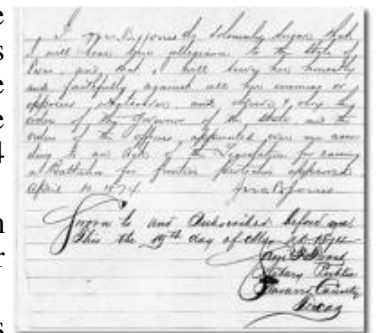 I Jno. B. Jones do Solemnly Swear that
I will bear true allegiance to the State of
Texas, and that I will serve her honestly
and faithfully against all her enemies or
opposers whatsoever and observe & obey the
orders of the Governor of the State and the
orders of the officers appointed over me accor
ding to an Act of the Legislature for raising
a Battalion for frontier protection approved
April 10 1874
Jno. B. Jones
Sworn to and Subscribed before me
This the 19th day of May AD 1874
Notary Public
Navarro County
Texas
e
s
e
e
4
n
r
s